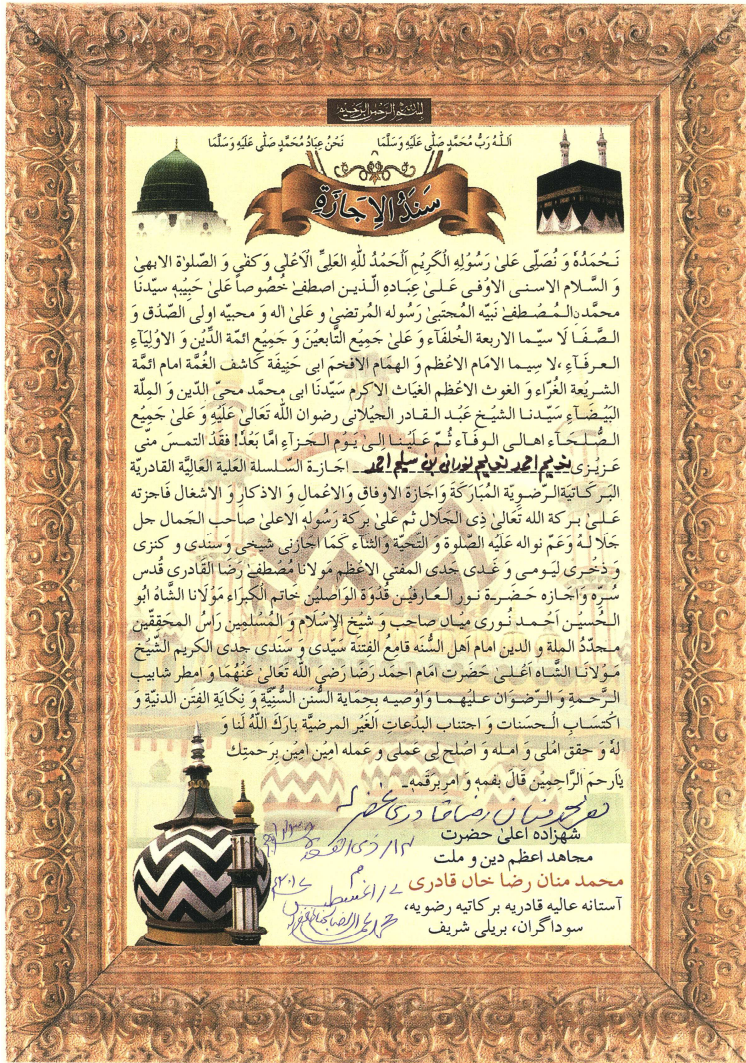 بسم الله الرحمن الرحيم
اَللهُ رَبُّ مُحَمَّدٍ صَلَّى عَلَيْهِ وَسَلَّمَا نَحْنُ عِبَادُ مُحَمَّدٍ صَلَّى عَلَيْهِ وَسَلَّمَا
سَنَدُ الْاِجَازَةِ
نَحْمَدُهٗ وَ نُصَلِّى عَلىٰ رَسُوْلِهِ الْكَرِيْمِ اَلْحَمْدُ لِلّٰهِ العَلِىِّ الْاَعْلٰى وَكفٰى وَ الصّلوٰة الابهىٰ
وَ السَّلام الاسنى الاوْفى عَلىٰ عِبَادهِ الّذين اصطفےٰ خُصُوصاً عَلىٰ حَبِيْبِهٖ سيّدنَا
محمّدنِ الْمُصْطفےٰ نَبيّه المُجتبىٰ رَسُوله المُرتضىٰ و عَلىٰ اله و محبيّه اولى الصّدْق وَ
الصَّفَا لَا سيّما الاربعة الخُلفآء وَ عَلىٰ جَمِيْع التَّابعِيْنَ وَ جَمِيْع ائمّة الدِّيْن وَ الاوْلِيَآءِ
العرفَآءِ ،لا سِيما الامَام الاعْظم و الهمَام الافخم ابى حَنِيفَة كَاشف الغُمَّة امام ائمَّة
الشريْعَة الغُرَّاء وَ الغوث الاعْظم الغيَاث الاكرم سَيّدنَا ابى محمَّد محىّ الدّين وَ المِلّة
البَيْضَآءِ سَيّدنا الشّيْخ عَبْد القادر الجِيْلانى رضوان الله تَعَالىٰ عَلَيْهِ وَ عَلىٰ جَمِيْع
الصُّلحَآء اهالى الوفَآء ثُمَّ عَلَيْنا الىٰ يَوْم الجزآءِ امّا بَعْدُ! فقدْ التمسَ منّى
عزيزى نديم احمد نعيم نورانى بن سليم احمد اجازة السّلسلة العَلية العَاليَة القادريّة
البركاتيّة الرّضويّة المُبَاركَة وَاِجَازة الاوفاق وَالاعْمال وَ الاذكار وَ الاشغال فاجزته
عَلىٰ بركة الله تَعَالىٰ ذِى الجَلال ثم عَلىٰ بركة رَسُولهِ الاعلىٰ صاحب الجَمال جل
جَلالهُ وَعَمّ نواله عَلَيْه الصّلوة وَ التَّحيَّة وَالثناء كَمَا اجَازنى شيخى وَسَندى و كنزى
وَ ذخْرى ليَومى وَ غَدى جَدى المفتى الاعْظم مَولانا مُصْطفےٰ رَضا القَادرى قُدس
سِرّه وَاجازه حَضْرة نور العَارفِيْن قُدْوَة الوَاصلين خاتم الكُبرَاء مَوْلَانا الشَّاه ابُو
الحُسَيْن اَحْمد نُورى ميَاں صاحب وَ شيْخ الاِسْلام وَ المُسْلِمين رَاسُ المحَققِّين
مجدّدُ الملة و الدين امام اَهل السُّنه قامعُ الفِتنَة سَيّدى وَ سَندى جدى الكريم الشّيْخ
مَوْلانَا الشَّاه اَعْلىٰ حَضرَت امَام احمَد رَضَا رَضِىَ الله تعَالىٰ عَنْهُمَا وَ امطر شابيب
الرَّحمةِ وَ الرّضوَان عليْهما وَاوصيه بِحِمَاية السُّنَن السُّنِّيَّةِ وَ نِكَايَة الفِتَن الدنيّة وَ
اكْتسَاب الحسنات وَ اجتناب البدْعَات الغَيْر المرضيَّة بَارَكَ اللّٰهُ لَنا وَ
لهُ وَ حقق امَلى وَ امله وَ اصْلح لِى عَملى وَ عمله امِيْن امِيْن بِرَحمتِك
يَاارحمَ الرَّاحِمِيْن قَالَ بفمهٖ وَ امر برَقمهٖ۔
فقير محمد منان رضا قادرى غفر لہ
شهزاده اعلىٰ حضرت
مجاهد اعظم دين و ملت
محمد منان رضا خاں قادرى
آستانه عاليه قادريه بركاتيه رضويه،
سوداگران، بريلى شريف